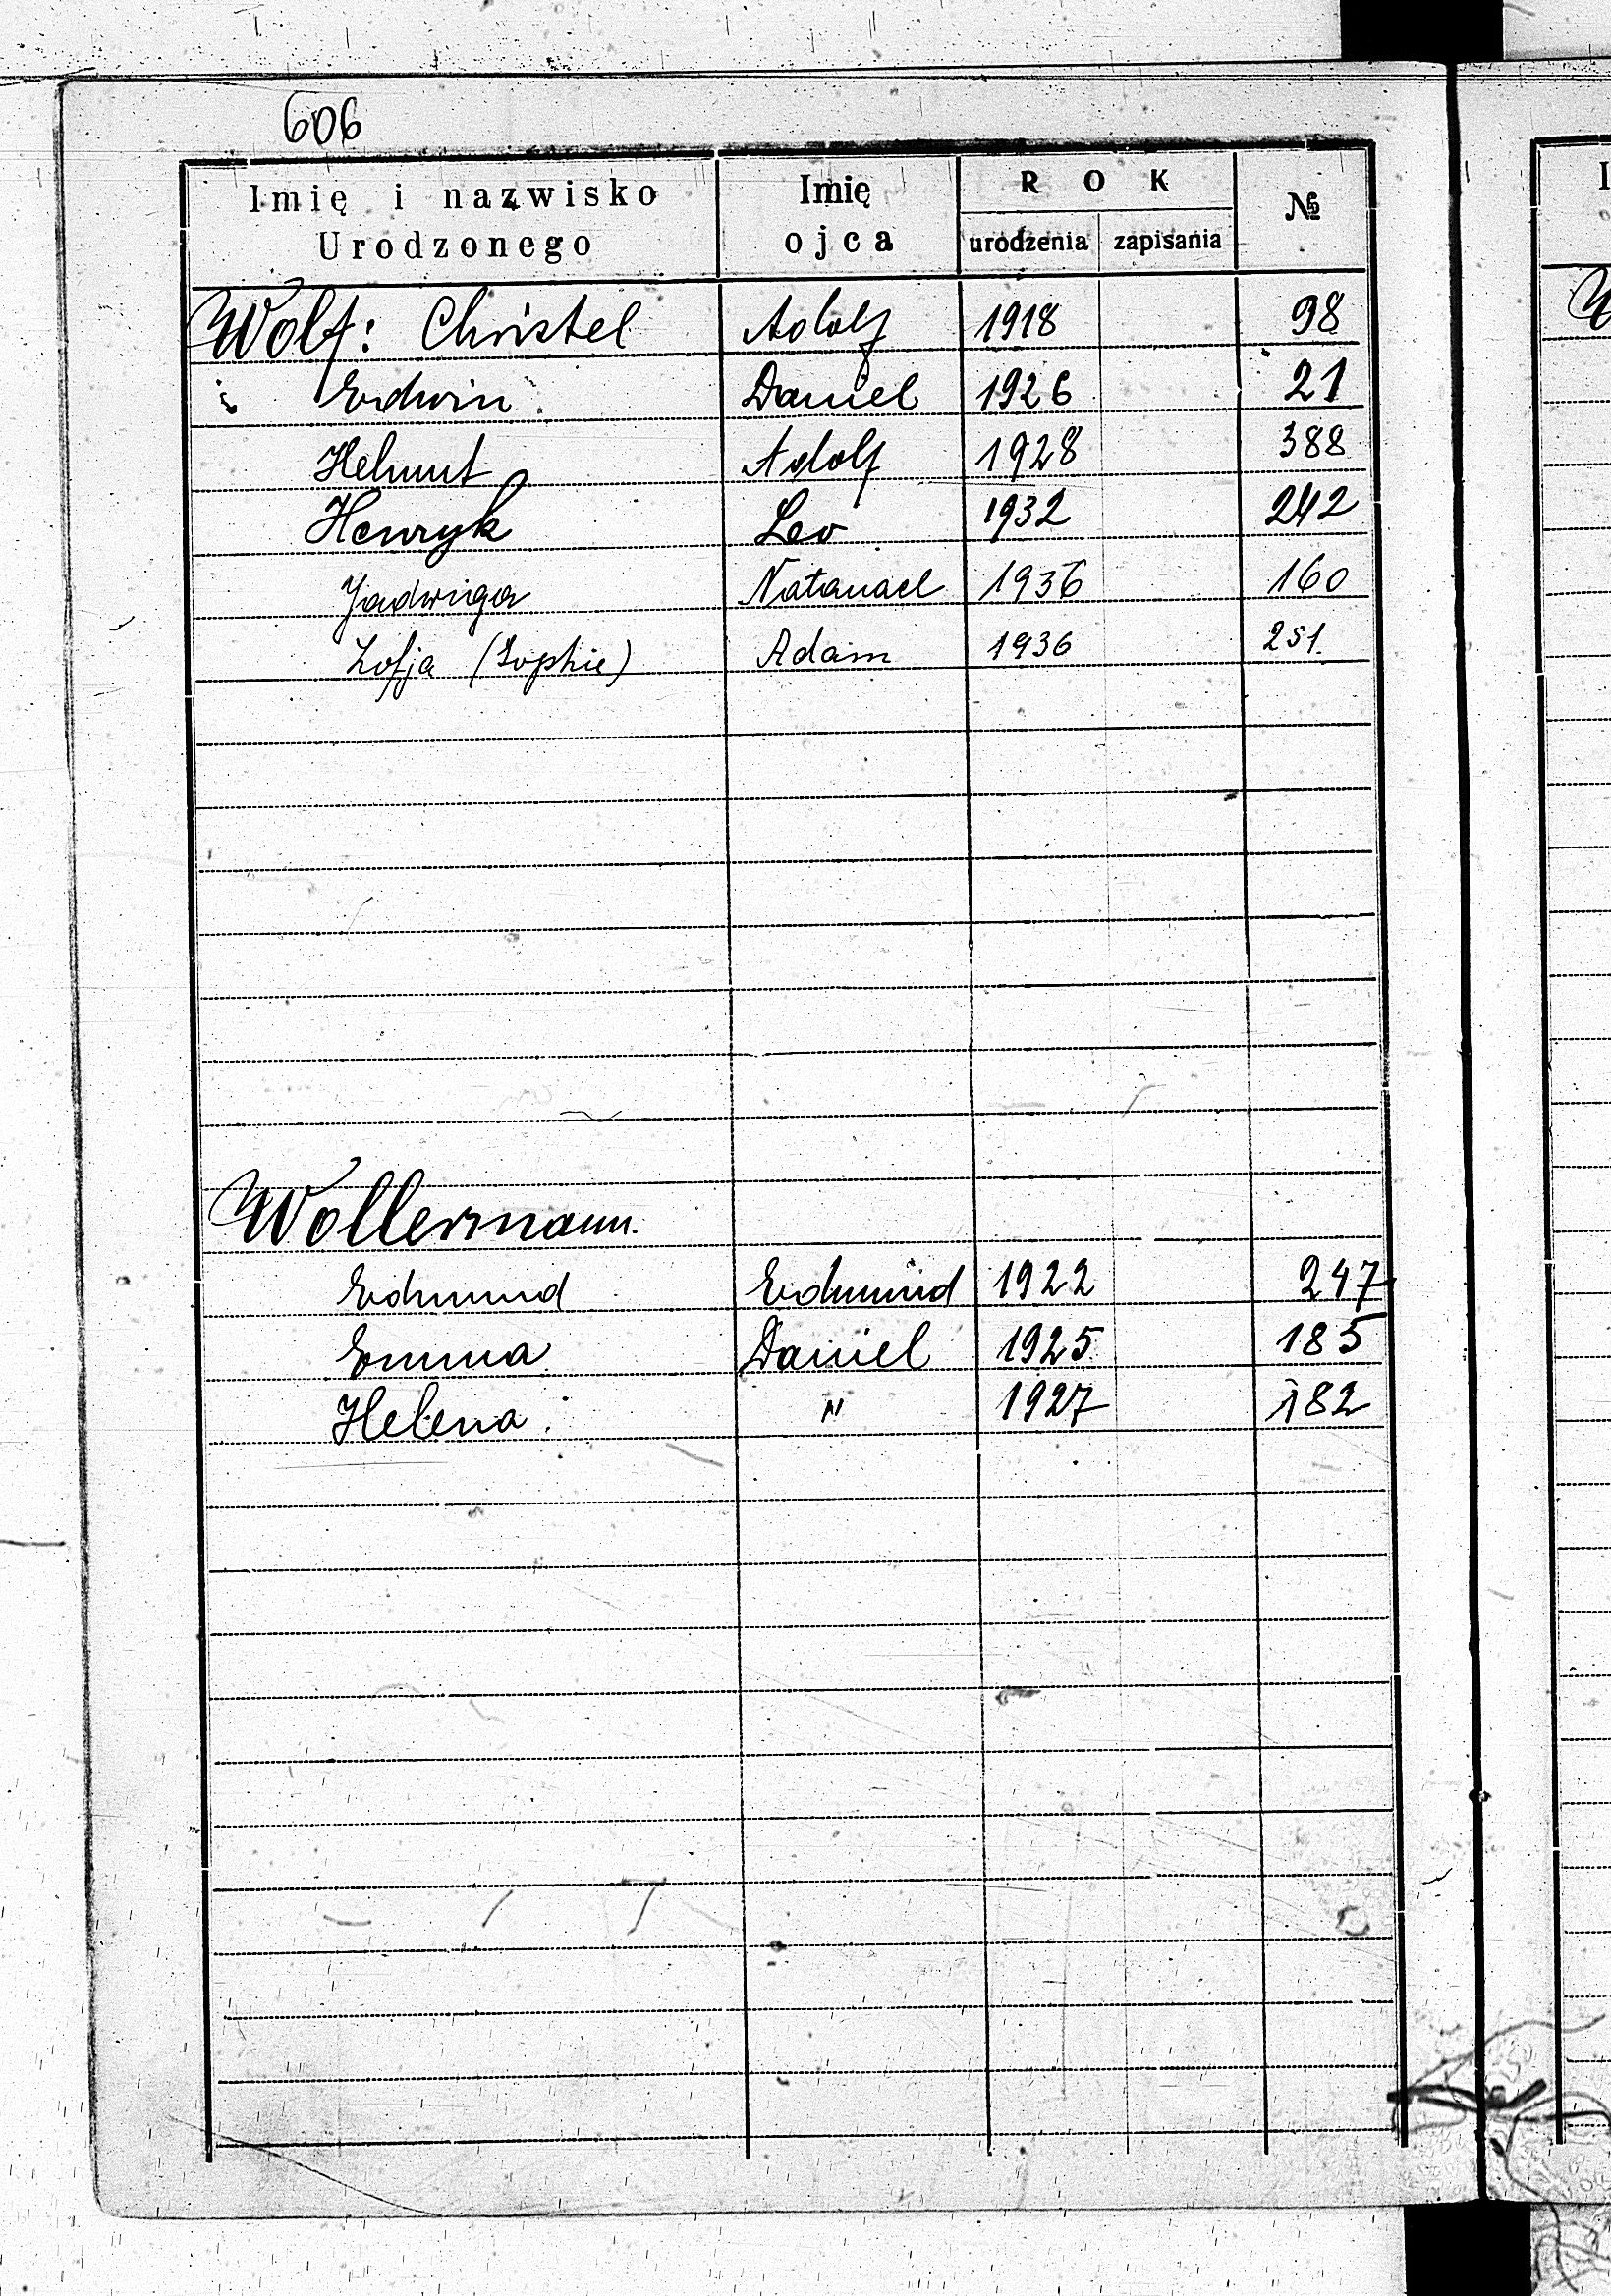 606
Imię i nazwisko Urodzonego Imię ojca ROK urodzenia zapisania №
Wolf: Christel Adolf 1918 98
Edwin Daniel 1926 21
Helmut Adolf 1928 388
Henryk Leo 1932 242
Jadwiga Natanael 1936 160
Zofja (Sophie) Adam 1936 251.
Wollermann.
Edmund Edmund 1922 247
Emma Daniel 1925 185
Helena " 1927 182